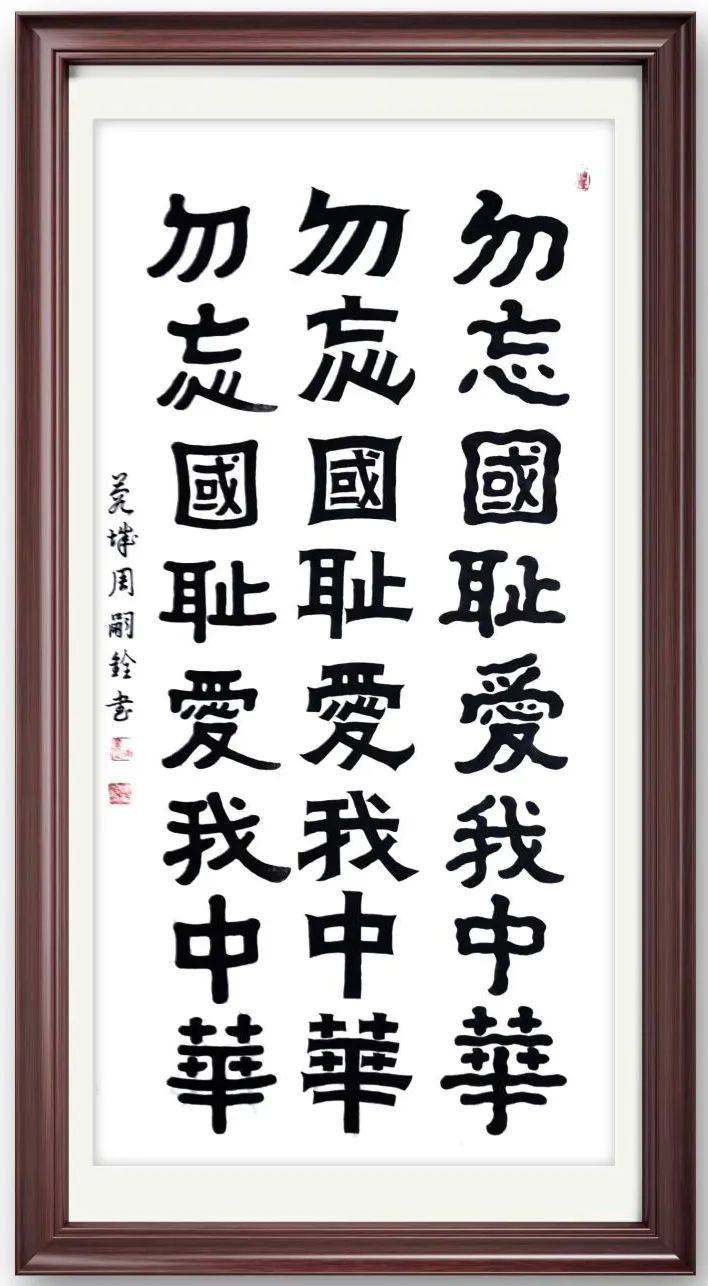 勿忘國恥愛我中華
勿忘國恥愛我中華
勿忘國恥愛我中華
城周嗣銓书